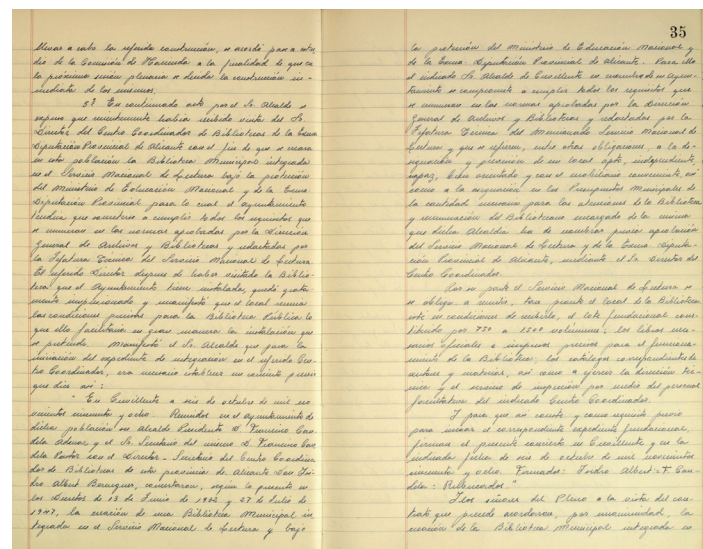 llevar a cabo la referida construcción, se acordó pase a estu-
dio de la Comisión de Hacienda a la finalidad de que en
la próxima sesión plenaria se decida la construcción in-
mediata de los mismos.
5º En continuado acto por el Sr. Alcalde se
expuso que recientemente había recibido visita del Sr.
Director del Centro Coordinador de Bibliotecas de la Excma
Diputación Provincial de Alicante con el fin de que se creara
en esta población la Biblioteca Municipal integrada
en el Servicio Nacional de Lectura bajo la protección
del Ministerio de Educación Nacional y de la Excma
Diputación Provincial para lo cual el Ayuntamiento
tendría que someterse a cumplir todos los requisitos que
se enumeran en las normas aprobadas por la Dirección
General de Archivos y Bibliotecas y redactadas por
la Jefatura Técnica del Servicio Nacional de Lectura.
El referido Director después de haber visitado la Biblio-
teca que el Ayuntamiento tiene instalada, quedó grata-
mente impresionado y manifestó que el local reunía
las condiciones precisas para la Biblioteca Pública lo
que ello facilitaría en gran manera la instalación que
se pretende. Manifestó el Sr. Alcalde que para la
iniciación del expediente de integración en el referido Cen-
tro Coordinador, era necesario establecer un concierto previo
que dice así:
" En Crevillente a seis de octubre de mil no-
vecientos cincuenta y ocho. Reunidos en el Ayuntamiento de
dicha población su Alcalde Presidente D. Francisco Can-
dela Adsuar y el Sr. Secretario del mismo D. Francisco Can-
dela Pastor con el Director-Secretario del Centro Coordina-
dor de Bibliotecas de esta provincia de Alicante Don Isi-
dro Albert Berenguer, concertaron, según lo previsto en
los Decretos de 13 de Junio de 1932 y 27 de Julio de
1947, la creación de una Biblioteca Municipal in-
tegrada en el Servicio Nacional de Lectura y bajo
35
la protección del Ministerio de Educación Nacional y
de la Excma. Diputación Provincial de Alicante. Para ello
el indicado Sr. Alcalde de Crevillente en nombre de su Ayun-
tamiento se compromete a cumplir todos los requisitos que
se enumeran en las normas aprobadas por la Dirección
General de Archivos y Bibliotecas y redactadas por la
Jefatura Técnica del Mencionado Servicio Nacional de
Lectura y que se refieren, entre otras obligaciones, a la de-
signación y provisión de un local apto, independiente,
capaz, bien orientado y con el mobiliario conveniente, así
como a la asignación en los Presupuestos Municipales de
la cantidad necesaria para las atenciones de la Biblioteca
y remuneración del Bibliotecario encargado de la misma
que dicha Alcaldía ha de nombrar previa aprobación
del Servicio Nacional de Lectura y de la Excma Diputa-
ción Provincial de Alicante, mediante el Sr. Director del
Centro Coordinador.
Por su parte el Servicio Nacional de Lectura se
se obliga a remitir, tan pronto el local de la Biblioteca
esté en condiciones de recibirlo, el lote fundacional cons-
tituido por 750 a 1500 volúmenes; los libros nece-
sarios oficiales e impresos precisos para el funciona-
miento de la Biblioteca; los catálogos correspondientes de
autores y materias, así como a ejercer la dirección téc-
nica y el servicio de inspección por medio del personal
facultativo del indicado Centro Coordinador.
Y para que así conste y como requisito previo
para iniciar el correspondiente expediente fundacional,
firman el presente concierto en Crevillente y en la
indicada fecha de seis de octubre de mil novecientos
cincuenta y ocho. Firmados: Isidro Albert = F. Can-
dela: Rubricados."
Los señores del Pleno a la vista del con-
trato que precede acordaron, por unanimidad, la
creación de la Biblioteca Municipal integrada en